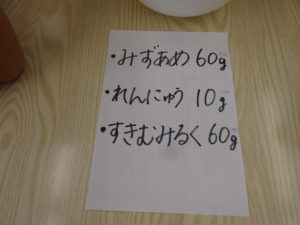 ・みずあめ 60g
・れんにゅう 10g
・すきむみるく 60g